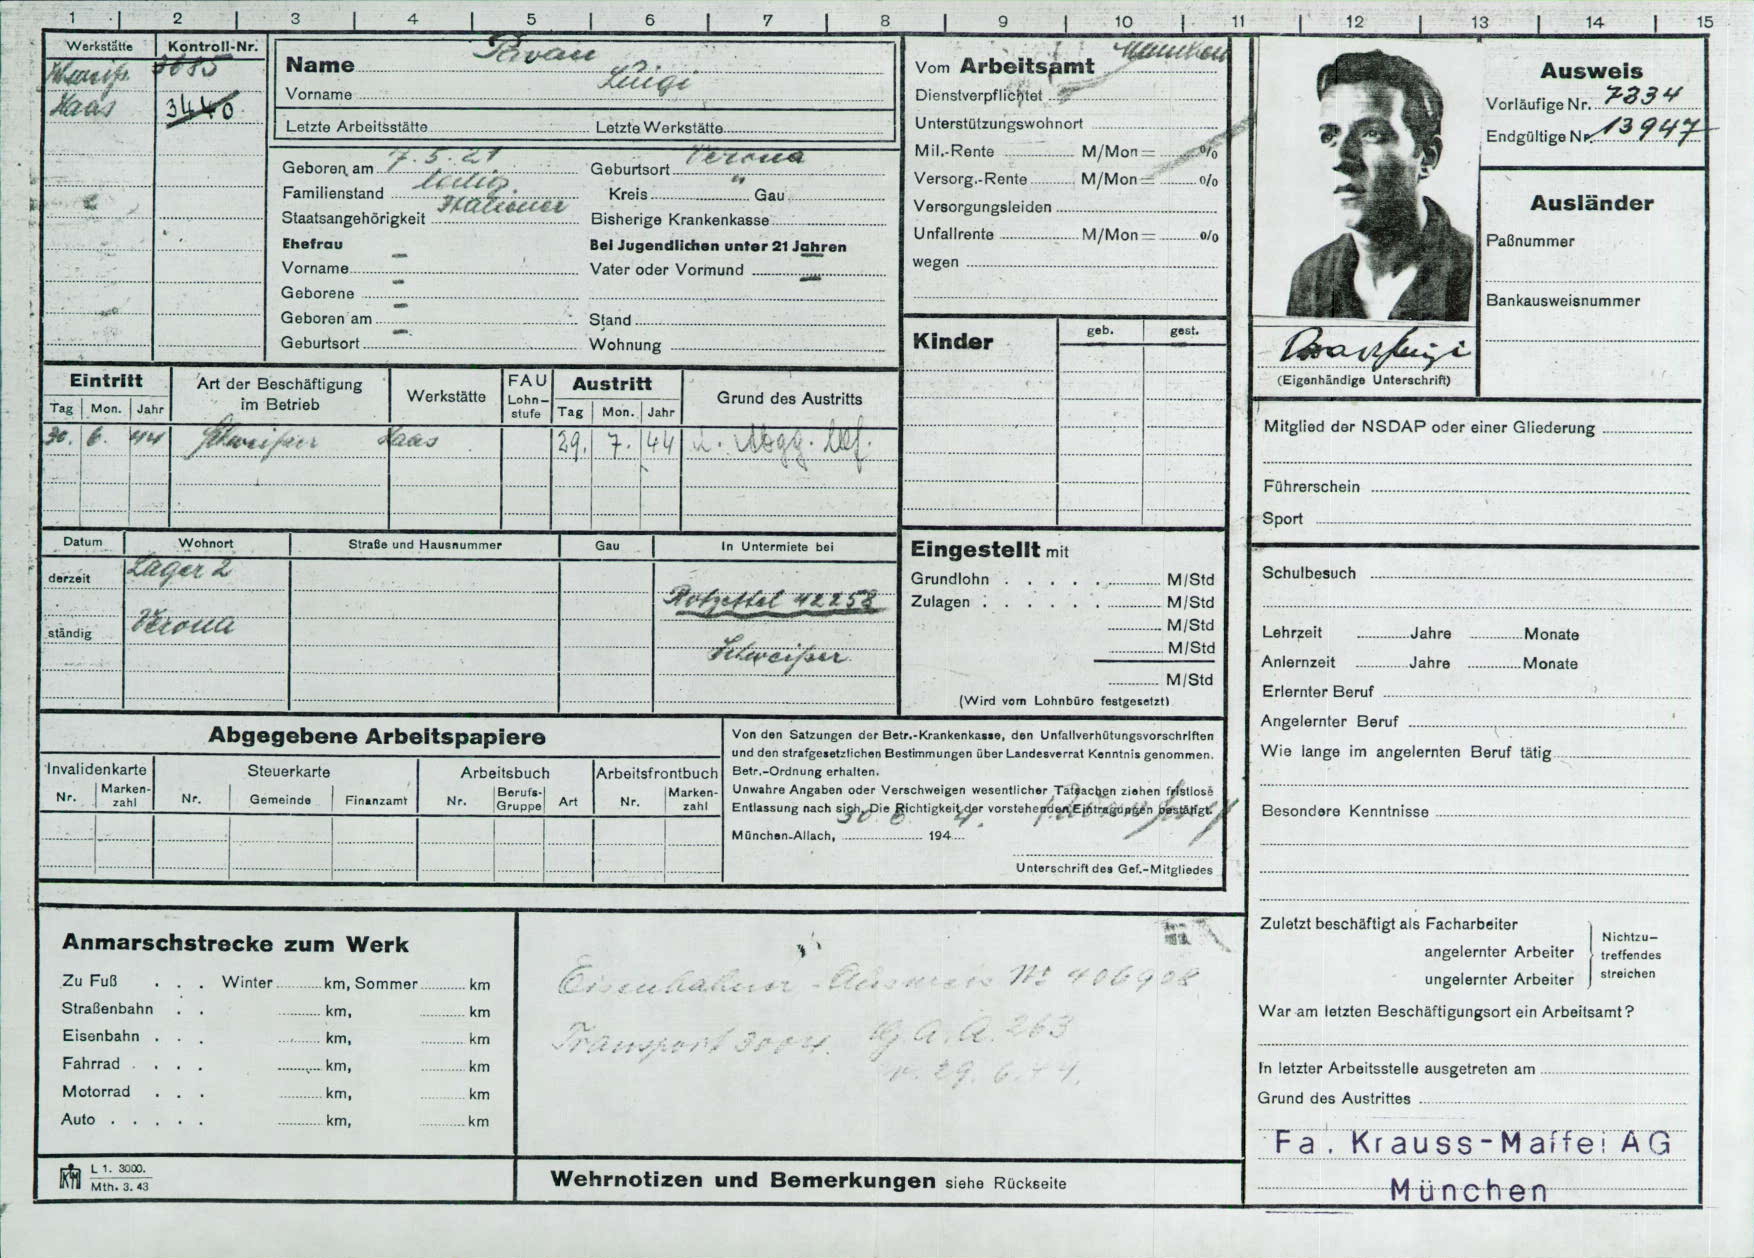 1 2 3 4 5 6 7 8 9 10 11 12 13 14 15
Werkstätte Kontroll-Nr.
3685
Haas 3440
Name
Vorname Luigi
Letzte Arbeitsstätte Letzte Werkstätte
Geboren am 7.5.21 Geburtsort Verona
Familienstand ledig Kreis " Gau
Staatsangehörigkeit Italiener Bisherige Krankenkasse
Ehefrau Bei Jugendlichen unter 21 Jahren
Vorname – Vater oder Vormund –
Geborene –
Geboren am – Stand
Geburtsort – Wohnung
Eintritt Art der Beschäftigung im Betrieb Werkstätte FAU Lohn-stufe Austritt Grund des Austritts
Tag Mon. Jahr Tag Mon. Jahr
30. 6. 44 Schweißer Haas 29. 7. 44
Datum Wohnort Straße und Hausnummer Gau In Untermiete bei
derzeit Lager 2
Rotzettel 42258
ständig Verona
Schweißer
Abgegebene Arbeitspapiere
Invalidenkarte Steuerkarte Arbeitsbuch Arbeitsfrontbuch
Nr. Marken-zahl Nr. Gemeinde Finanzamt Nr. Berufs-Gruppe Art Nr. Marken-zahl
Von den Satzungen der Betr.-Krankenkasse, den Unfallverhütungsvorschriften
und den strafgesetzlichen Bestimmungen über Landesverrat Kenntnis genommen.
Betr.-Ordnung erhalten.
Unwahre Angaben oder Verschweigen wesentlicher Tatsachen ziehen fristlose
Entlassung nach sich. Die Richtigkeit der vorstehenden Eintragungen bestätigt.
München-Allach, 30. 6. 194 4.
Unterschrift des Gef.-Mitgliedes
Anmarschstrecke zum Werk
Zu Fuß . . . Winter km, Sommer km
Straßenbahn . . km, km
Eisenbahn . . . km, km
Fahrrad . . . . km, km
Motorrad . . . km, km
Auto . . . . . km, km
Eisenbahner-Ausweis Nr 406908
Transport 3004. G.A.A. 263
v. 29. 6. 44.
KM L 1. 3000.
Mth. 3. 43
Wehrnotizen und Bemerkungen siehe Rückseite
Vom Arbeitsamt München
Dienstverpflichtet
Unterstützungswohnort
Mil.-Rente M/Mon = %
Versorg.-Rente M/Mon = %
Versorgungsleiden
Unfallrente M/Mon = %
wegen
Kinder geb. gest.
Eingestellt mit
Grundlohn . . . . . M/Std
Zulagen . . . . . . M/Std
M/Std
M/Std
M/Std
(Wird vom Lohnbüro festgesetzt)
(Eigenhändige Unterschrift)
Ausweis
Vorläufige Nr. 7334
Endgültige Nr. 13947
Ausländer
Paßnummer
Bankausweisnummer
Mitglied der NSDAP oder einer Gliederung
Führerschein
Sport
Schulbesuch
Lehrzeit Jahre Monate
Anlernzeit Jahre Monate
Erlernter Beruf
Angelernter Beruf
Wie lange im angelernten Beruf tätig
Besondere Kenntnisse
Zuletzt beschäftigt als Facharbeiter
angelernter Arbeiter
ungelernter Arbeiter
Nichtzu-
treffendes
streichen
War am letzten Beschäftigungsort ein Arbeitsamt?
In letzter Arbeitsstelle ausgetreten am
Grund des Austrittes
Fa. Krauss-Maffei AG
München